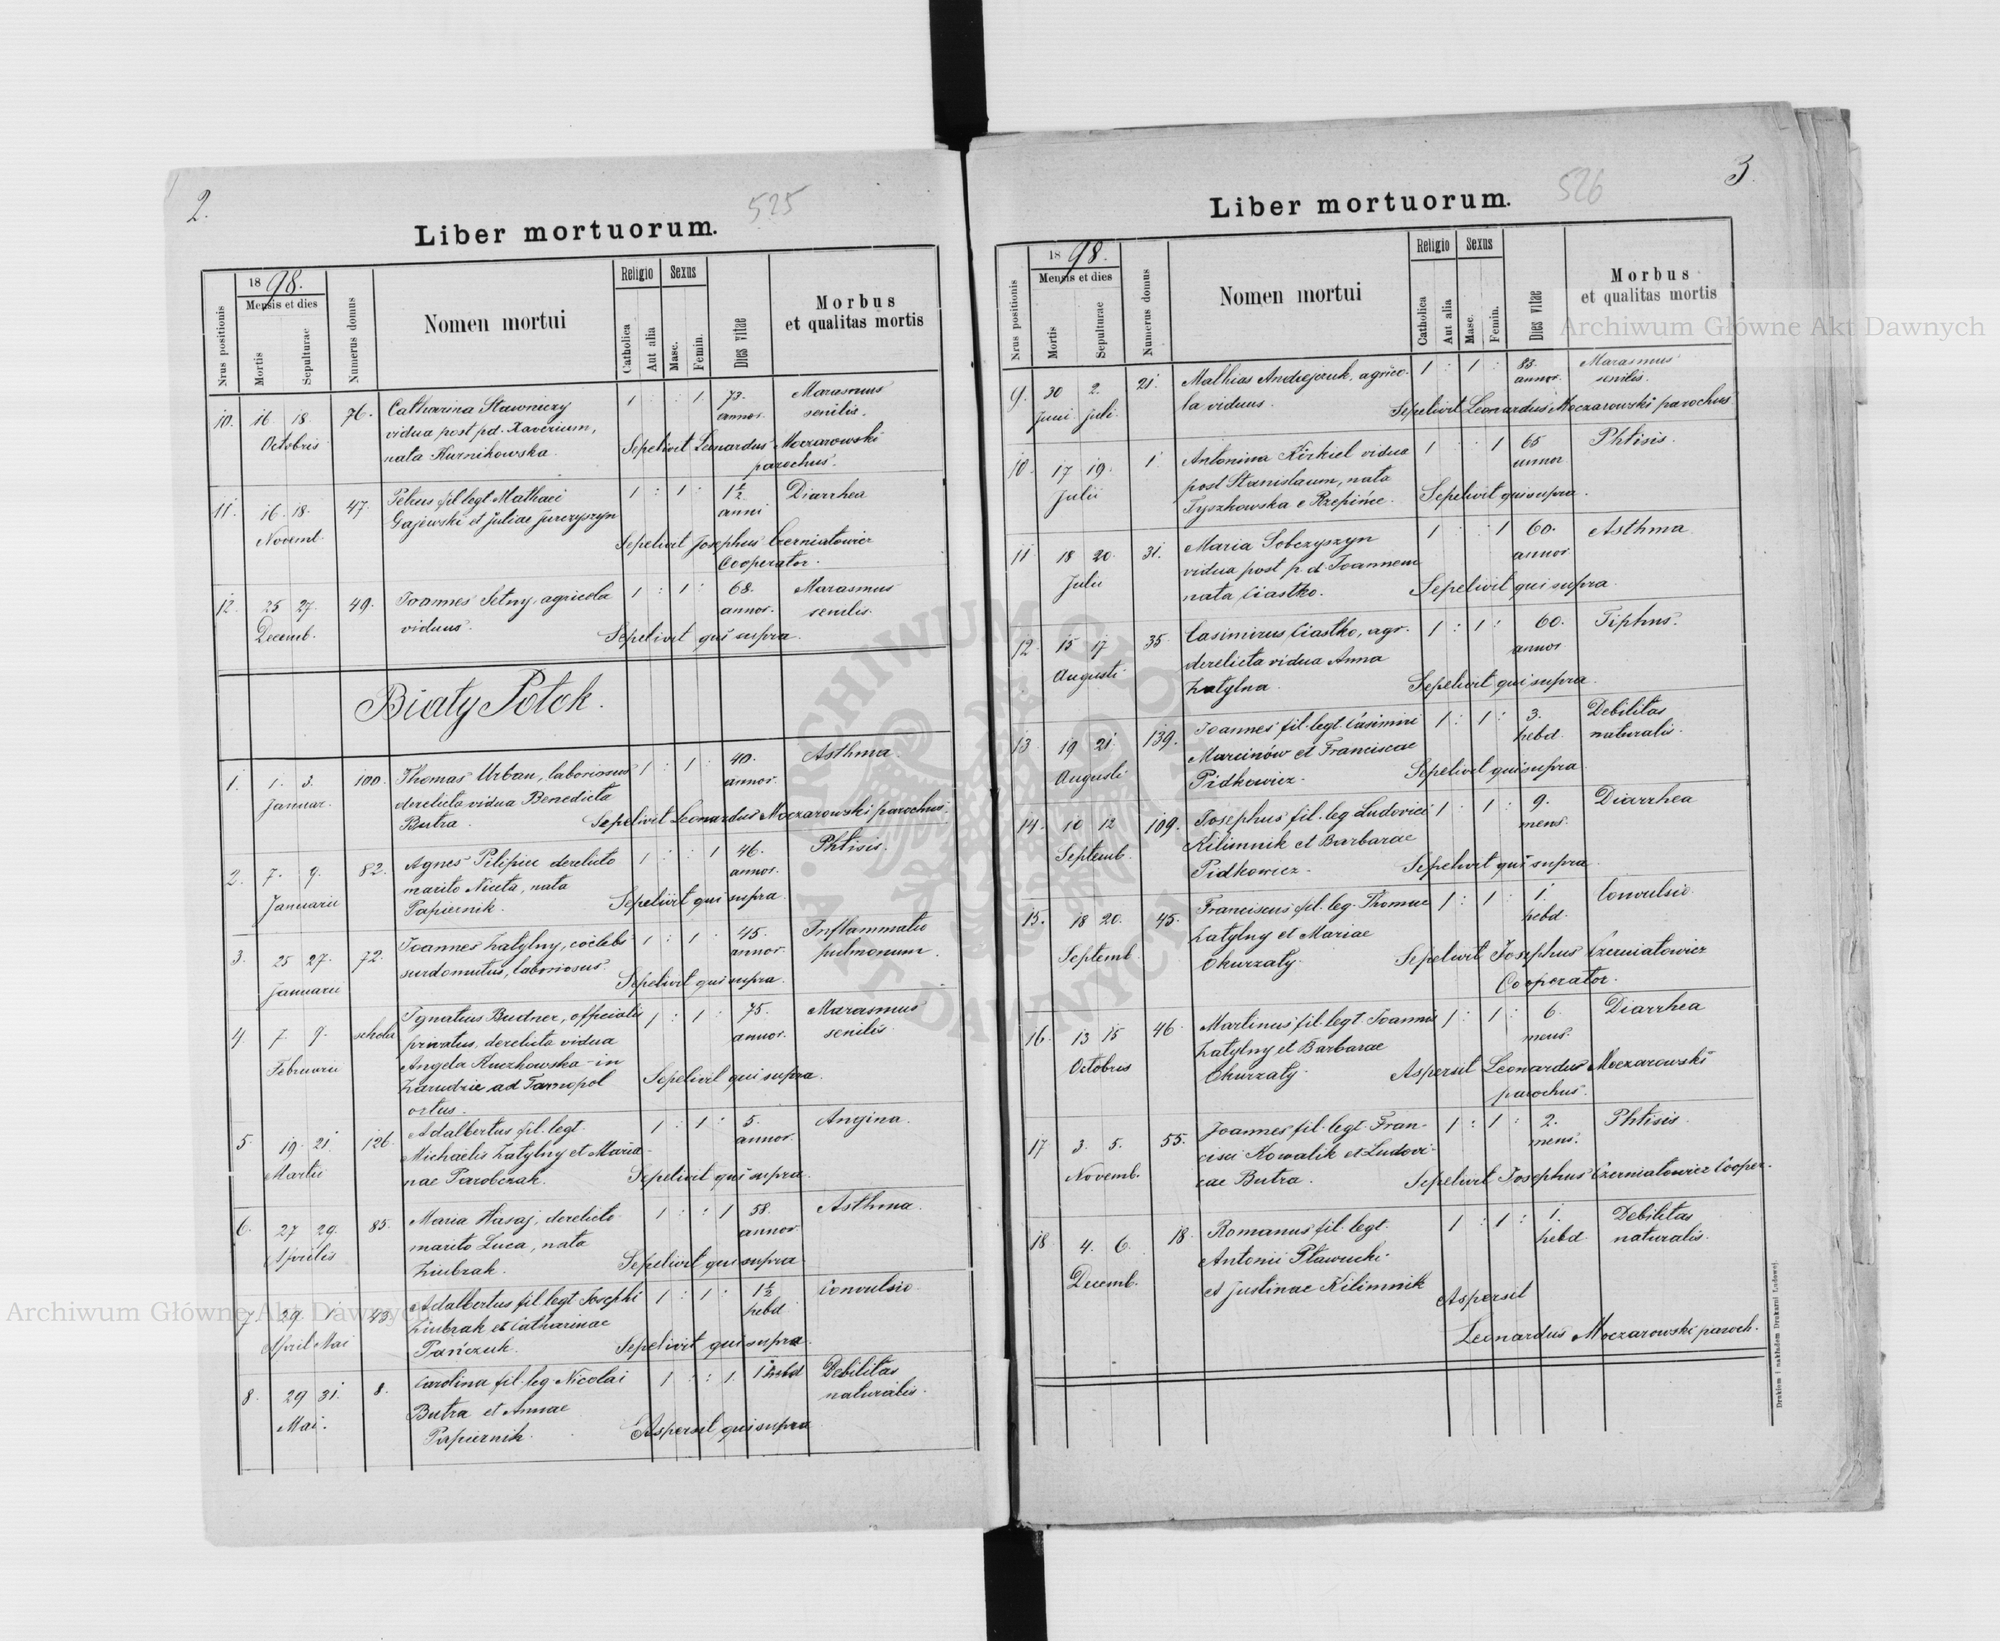 2.
525
Liber mortuorum.
Nrus positionis
1898.
Mensis et dies
Mortis
Sepulturae
Numerus domus
Nomen mortui
Religio
Catholica
Aut alia
Sexus
Masc.
Femin.
Dies vitae
Morbus
et qualitas mortis
10. 16 18. 76. Catharina Stawniczy 1 : : 1 73. Marasmus
Octobris vidua post pd. Xaverium, annor. senilis.
nata Kurnikowska. Sepelivit Leonardus Moczarowski
parochus.
11. 16. 18. 47. Petrus fil legt Mathaei 1 : 1 : 1 1/2 Diarrhea
Novemb. Gajewski et Juliae Jurczyszyn anni
Sepelivit Josephus Czerniatowicz
Cooperator.
12. 25 27. 49. Joannes Setny, agricola 1 : 1 : 68. Marasmus
Decemb. viduus. annor. senilis.
Sepelivit qui supra.
Biały Potok.
1. 1. 3. 100. Thomas Urban, laboriosus 1 : 1 : 40. Asthma.
Januar. derelicta vidua Benedicta annor.
Butra. Sepelivit Leonardus Moczarowski parochus.
2. 7. 9. 82. Agnes Pilipiw derelicto 1 : : 1 46. Phtisis.
Januarii marito Niceta, nata annor.
Papiernik. Sepelivit qui supra.
3. 25 27. 72. Joannes Zatylny, coelebs 1 : 1 : 45. Inflammatio
Januarii surdomutus, laboriosus. annor. pulmonum.
Sepelivit qui supra.
4 7. 9. schola Ignatius Budner, officialis 1 : 1 : 75. Marasmus
Februarii privatus, derelicta vidua annor. senilis
Angela Ruczkowska - in
Zarudzie ad Tarnopol Sepelivit qui supra.
ortus.
5. 19. 21. 126. Adalbertus fil. legt. 1 : 1 : 5. Angina.
Martii Michaelis Zatylny et Maria- annor.
nae Parobczak. Sepelivit qui supra.
6. 27 29. 85. Maria Hasaj, derelicto 1 : : 1 58. Asthma.
Aprilis marito Luca, nata annor
Ziubrak. Sepelivit qui supra
7. 29 1. 43. Adalbertus fil. legt Josephi 1 : 1 : 1 1/2 Convulsio
April Mai Ziubrak et Catharinae hebd
Pańczuk. Sepelivit qui supra.
8. 29 31. 8. Carolina fil. leg Nicolai 1 : : 1 1 hebd Debilitas
Mai. Butra et Annae naturalis.
Papiernik. Aspersit qui supra
3.
526
Liber mortuorum.
Nrus positionis
1898.
Mensis et dies
Mortis
Sepulturae
Numerus domus
Nomen mortui
Religio
Catholica
Aut alia
Sexus
Masc.
Femin.
Dies vitae
Morbus
et qualitas mortis
9. 30 2. 21. Mathias Andrejczuk, agrico- 1 : 1 : 83. Marasmus
Juni juli. la viduus. annor. senilis.
Sepelivit Leonardus Moczarowski parochus
10. 17 19. 1. Antonina Kirkiel vidua 1 : : 1 65 Phtisis.
Julii post Stanislaum, nata annor
Tyszkowska e Rzepińce. Sepelivit qui supra.
11 18 20. 31. Maria Sobczyszyn 1 : : 1 60. Asthma
Julii vidua post p d Joannem annor
nata Ciastko. Sepelivit qui supra.
12 15 17 35. Casimirus Ciastko, agr. 1 : 1 : 60. Tiphus.
Augusti derelicta vidua Anna annor
Zatylna. Sepelivit qui supra.
13. 19 21. 139. Joannes fil. legt Casimiri 1 : 1 : 3. Debilitas
Augusti Marcinów et Franciscae hebd naturalis.
Pidkowicz. Sepelivit qui supra.
14. 10 12 109. Josephus fil. leg Ludovici 1 : 1 : 9. Diarrhea
Septemb. Kilimnik et Barbarae mens.
Pidkowicz. Sepelivit qui supra.
15. 18 20. 45. Franciscus fil. leg. Thomae 1 : 1 : 1. Convulsio
Septemb Zatylny et Mariae hebd.
Okurzaty. Sepelivit Josephus Czerniatowicz
Cooperator.
16. 13 15 46. Martinus fil. legt Joannis 1 : 1 : 6. Diarrhea
Octobris Zatylny et Barbarae mens.
Okurzaty. Aspersit Leonardus Moczarowski
parochus.
17 3. 5. 55. Joannes fil. legt. Fran- 1 : 1 : 2. Phtisis
Novemb. cisci Kowalik et Ludovi- mens.
cae Butra. Sepelivit Josephus Czerniatowicz Cooper.
18. 4. 6. 18. Romanus fil. legt. 1 : 1 : 1. Debilitas
Decemb. Antonii Pławucki hebd naturalis.
et Justinae Kilimnik Aspersit
Leonardus Moczarowski paroch.
Drukiem i nakładem Drukarni Ludowej.
Archiwum Główne Akt Dawnych
Archiwum Główne Akt Dawnych